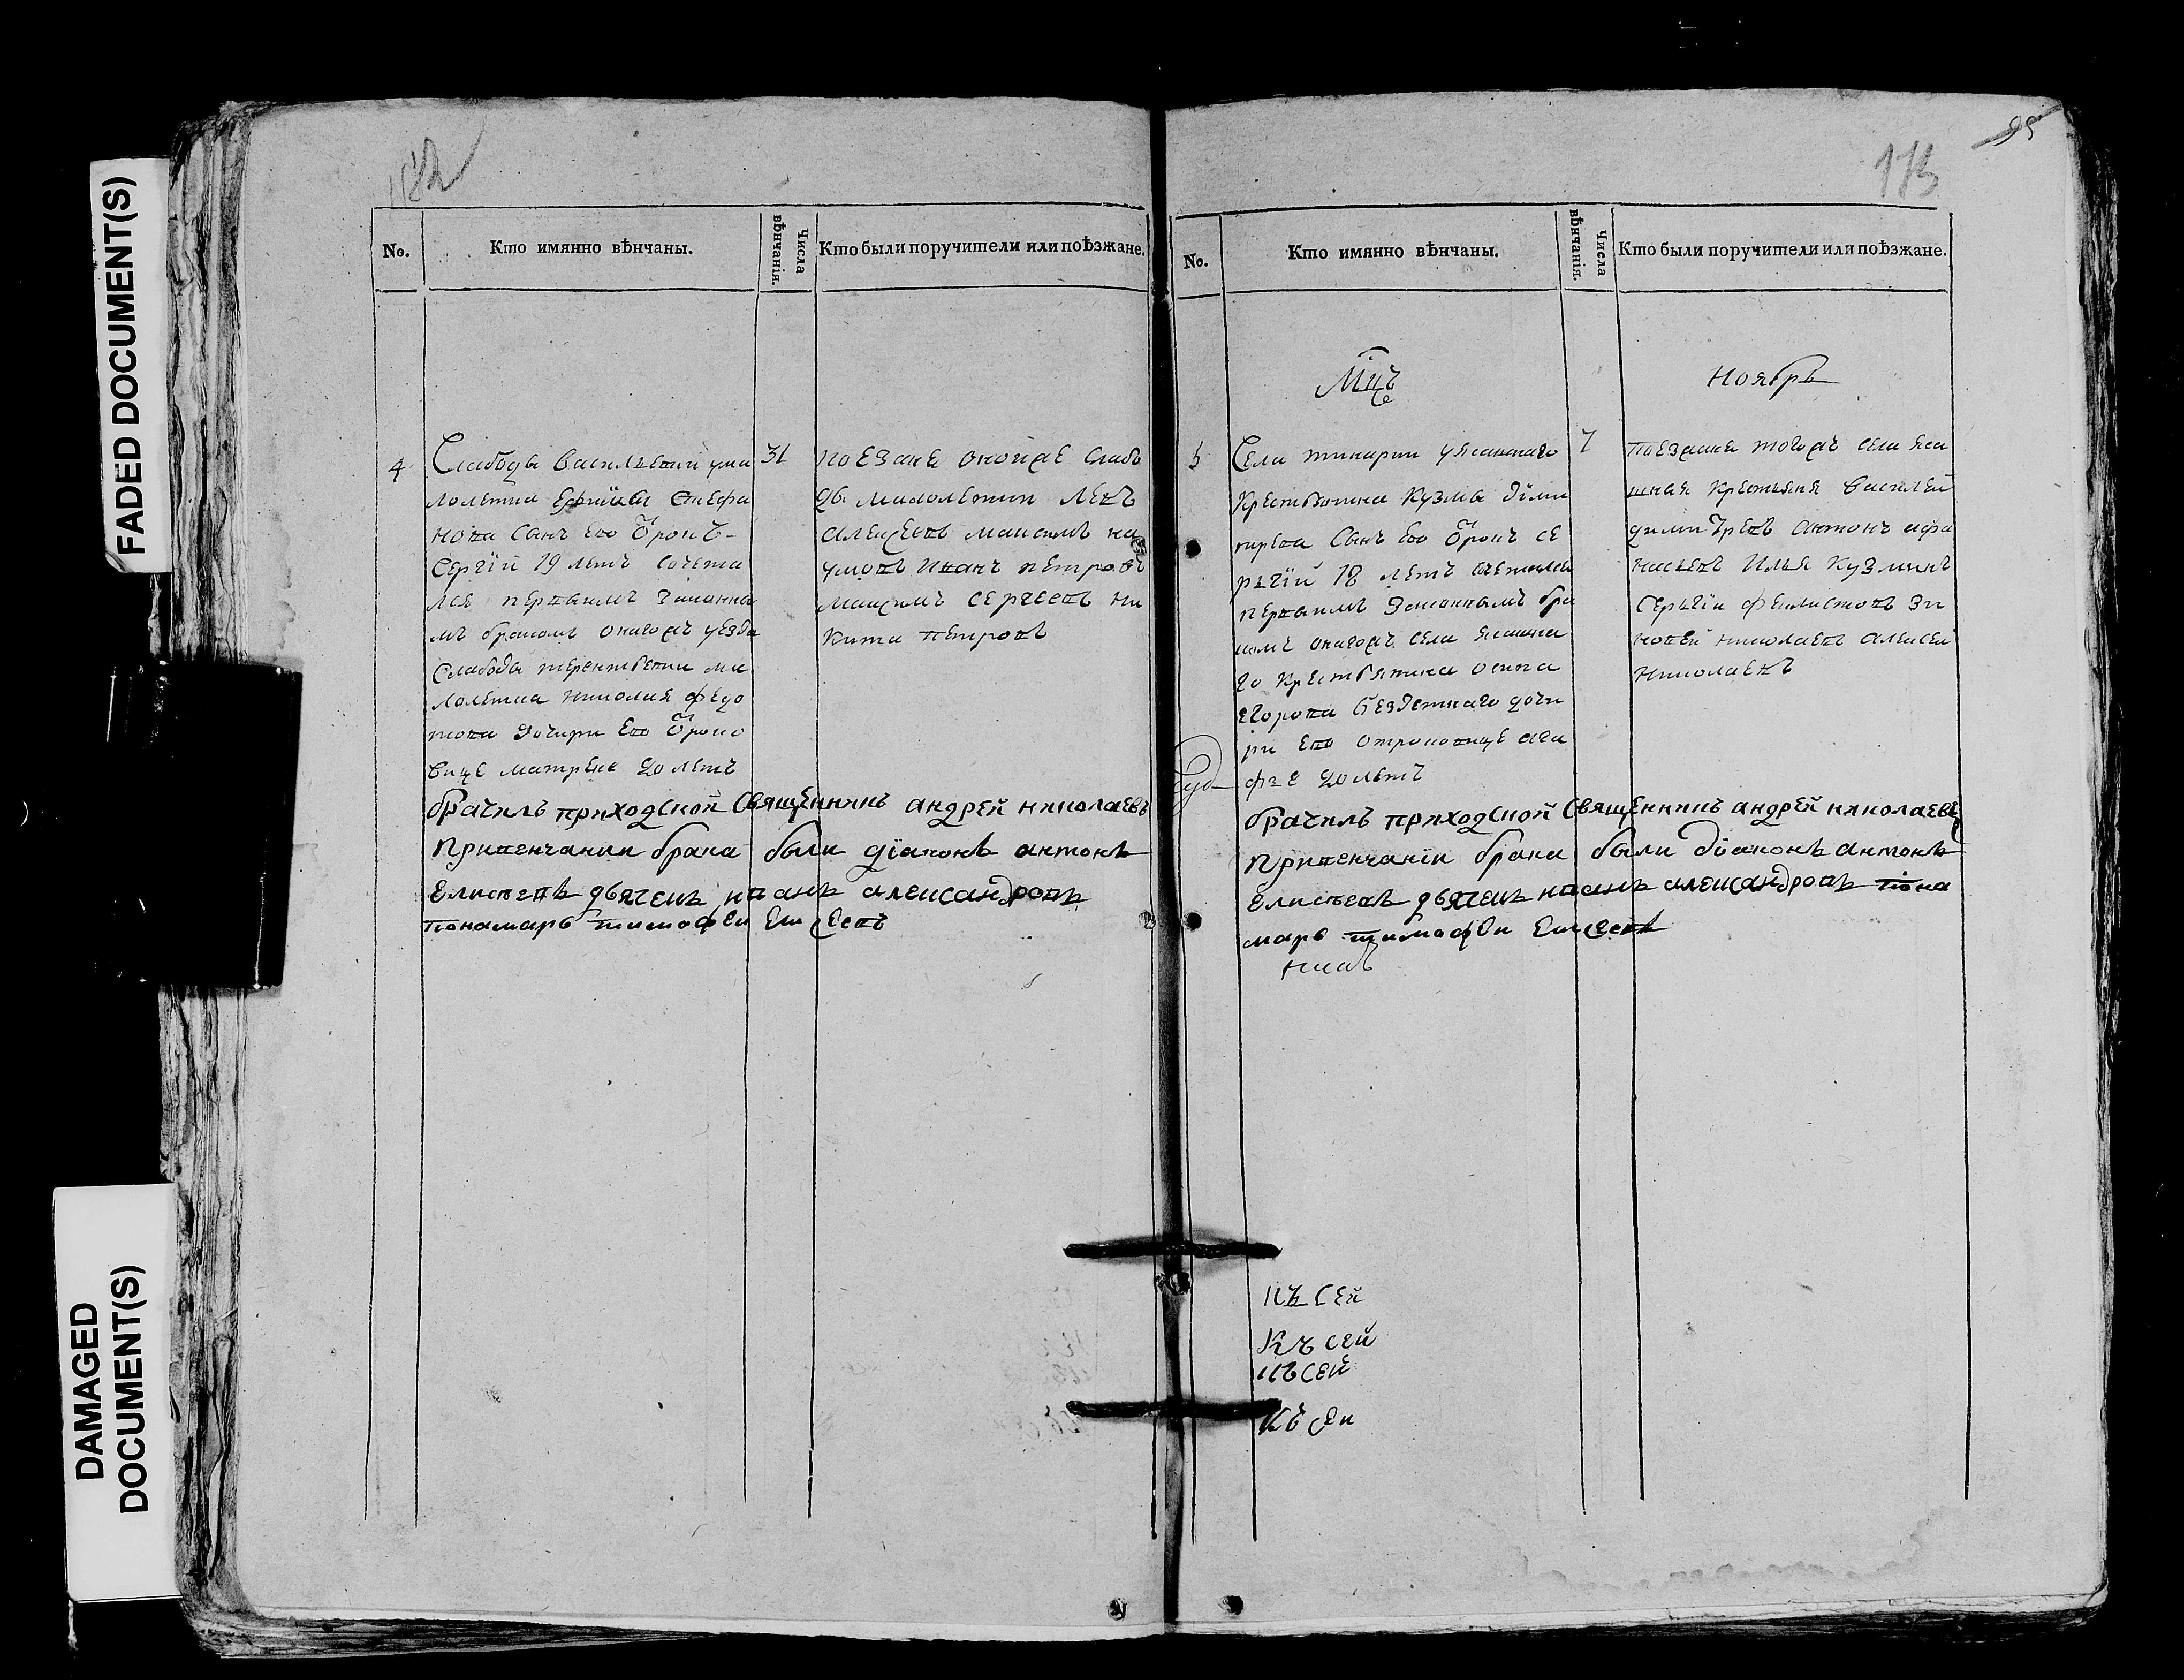 FADED DOCUMENT(S)
DAMAGED
DOCUMENT(S)
182
No.
Кто имянно вѣнчаны.
Числа
вѣнчанія.
Кто были поручители или поѣзжане.
4
Слабоды Василъевки ума
лолетка Стефа
нова Сынъ Его Ѿрокъ
Сергїй 19 летъ сочета
лся первымъ законны
мъ бракомъ онагожъ уезда
Слабоды терентьевки ма
лолетка николая федо
това дочири Его Ѿроко
вице матрене 20 летъ
31
поезжане онойже слабо
ды малолетки Левъ
Алексеевъ максимъ на
умовъ Иванъ петровъ
максимъ сергеевъ ни
кита петровъ
брачилъ приходской Священникъ андрей николаевъ
При венчании брака были дїаконъ антонъ
Елисеевъ дьячекъ иванъ александровъ
понамарь тимофеи Елисеевъ
95
173
No.
Кто имянно вѣнчаны.
Числа
вѣнчанія.
Кто были поручители или поѣзжане.
Мцъ
Ноябрь
5
Села тинарки уясашнаго
Крестьянина Кузмы дими
триева Сынъ Его Ѿрокъ се
ргїй 18 летъ сочетался
первымъ Законнымъ бра
комъ онагожъ села ясашна
го Крестьянина осипа
Егорова бездетнаго дочи
ри Его отроковице ага
фье 20 летъ
7
поезжане тогожъ села яса
шная Крестьяня Василей
димитревъ антонъ афа
насьевъ Илья Кузминъ
Сергїи феклистовъ зи
новей николаевъ алексей
николаевъ
брачилъ приходской Священникъ андрей николаевъ
При венчанїи брака были дїаконъ антонъ
Елисеевъ дьячекъ иванъ александровъ пона
марь тимофеи Елисеевъ
Къ Сей
Къ сей
Къ сей
Къ сеи